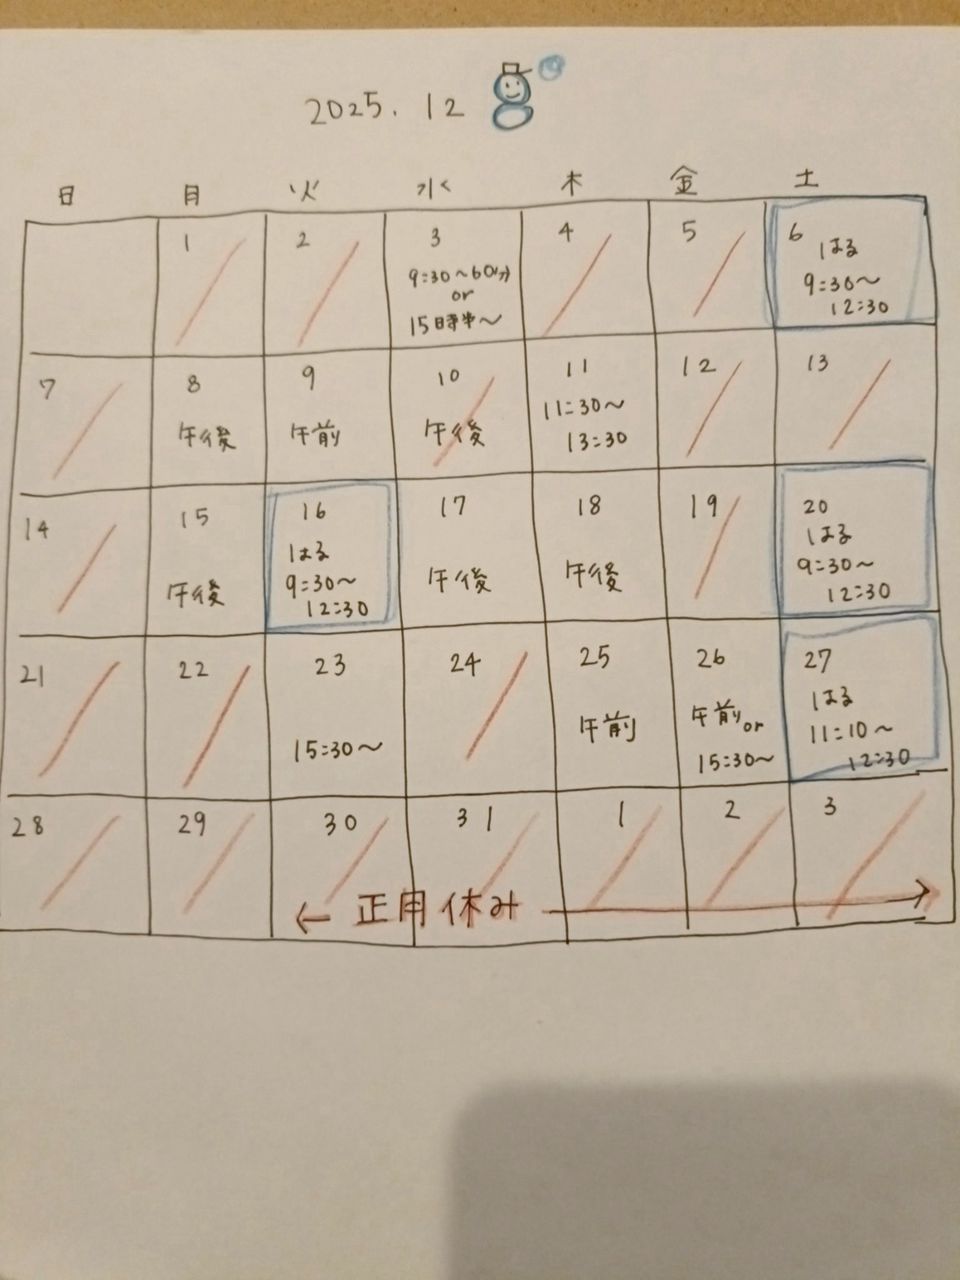 2025. 12
日 月 火 水 木 金 土
1
2
3
9:30〜60分
or
15時半〜
4
5
6
はる
9:30〜
12:30
7
8
午後
9
午前
10
午後
11
11:30〜
13:30
12
13
14
15
午後
16
はる
9:30〜
12:30
17
午後
18
午後
19
20
はる
9:30〜
12:30
21
22
23
15:30〜
24
25
午前
26
午前or
15:30〜
27
はる
11:10〜
12:30
28
29
30
31
1
2
3
← 正月休み →